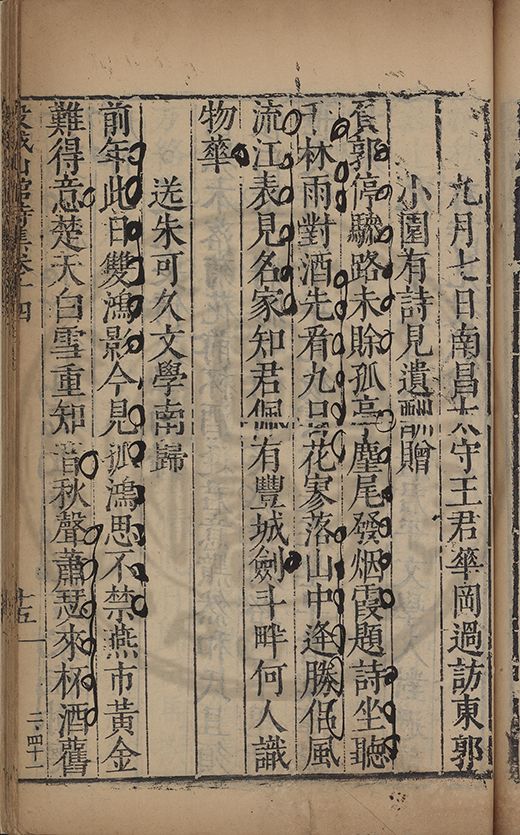 九月七日南昌太守王君華岡過訪東郭
小園有詩見遺酬贈
負郭停驂路未賖孤亭麈尾發烟霞題詩坐聽
千林雨對酒先看九日花寥落山中逢勝侣風
流江表見名家知君佩有豐城劍斗畔何人識
物華
送朱可久文學南歸
前年此日雙鴻影今見孤鴻思不禁燕市黃金
難得意楚天白雪重知音秋聲蕭瑟來杯酒舊
穀城山館詩集卷十四
十五